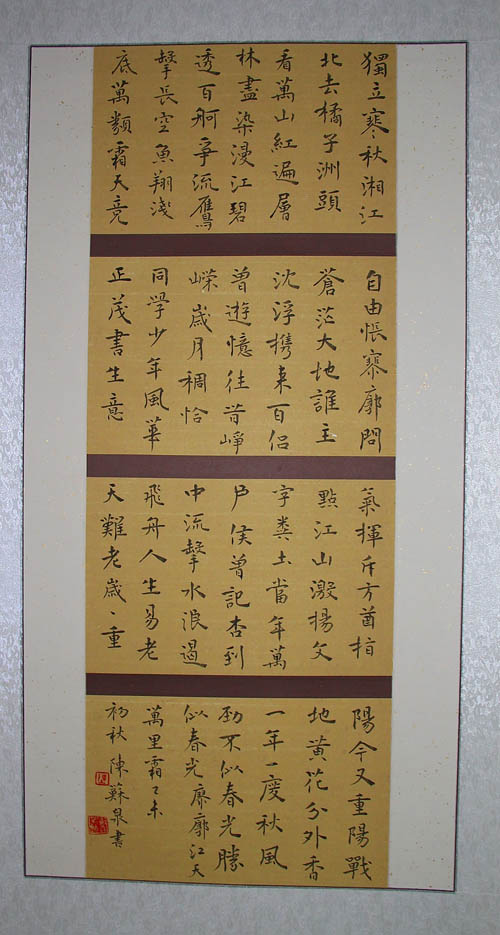 獨立寒秋湘江
北去橘子洲頭
看萬山紅遍層
林盡染漫江碧
透百舸爭流鷹
擊長空魚翔淺
底萬類霜天竞
自由悵寥廓問
蒼茫大地誰主
沈浮携來百侶
曾遊憶往昔崢
嶸歲月稠恰
同學少年風華
正茂書生意
氣揮斥方遒指
點江山激揚文
字糞土當年萬
戶侯曾記否到
中流擊水浪遏
飛舟人生易老
天難老歲、重
陽今又重陽戰
地黃花分外香
一年一度秋風
勁不似春光勝
似春光寥廓江天
萬里霜乙未
初秋陳蘇泉書